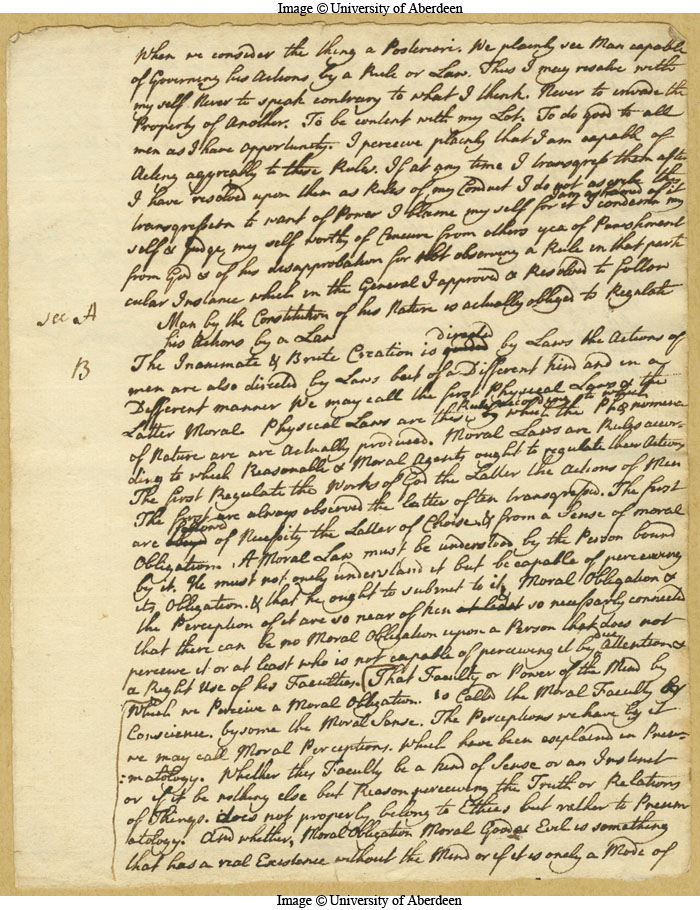 Image © University of Aberdeen
When we consider the thing a Posteriori. We plainly see Man capable
of Governing his Actions by a Rule or Law. Thus I may resolve with
my self Never to speak contrary to what I think. Never to invade the
Property of Another. To be content with my Lot. To do good to all
men as I have opportunity. I perceive plainly that I am capable of
Acting aggreably to these Rules. If at any time I transgress them after
I have resolved upon them as Rules of my Conduct I do not ascribe the
transgression to want of Power I blame my self for it I am ashamed of it I condemn my
self & judge my self worthy of Censure from others yea of Punishment
from God & of his disapprobation for Not observing a Rule in that parti
cular Instance which in the General I approved & Resolved to follow
see A
Man by the Constitution of his Nature is actually obliged to Regulate
his Actions by a Law
B
The Inanimate & Brute Creation is directed by Laws the Actions of
men are also directed by Laws but of a Different kind and in a
Different manner We may call the first Physical Laws & the
Latter Moral Physical Laws are the Rules according to which the Phænomena
of Nature are are Actually produced. Moral Laws are Rules accor-
ding to which Reasonable & Moral Agents ought to regulate their Actions
The first Regulate the Works of God the Latter the Actions of Men
The first are always observed the latter often transgressed. The first
are of Necessity the Latter of Choise & from a Sense of moral
Obligation. A Moral Law must be understood by the Person bound
by it. He must not onely understand it but be capable of perceiving
its Obligation. & that he ought to submit to it, Moral Obligation &
the Perception of it are so near of kin at least so necessarly connected
that there can be no Moral Obligation upon a Person that does not
perceive it or at least who is not capable of perceiving it by Attention &
a Right Use of his Faculties. That Faculty or Power of the Mind by
Which we Perceive a Moral Obligation. is Called the Moral Faculty or
Conscience, by some the Moral Sense. The Perceptions we have by it
we may call Moral Perceptions. Which have been explained in Pneu-
:matology. Whether this Faculty be a kind of Sense or an Instinct
or if it be nothing else but Reason perceiving the Truth or Relations
of Things. does not properly belong to Ethics but rather to Pneum
atology. And whether, Moral Obligation Moral Good & Evil is something
that has a real Existence without the Mind or if it is onely a Mode of
Image © University of Aberdeen